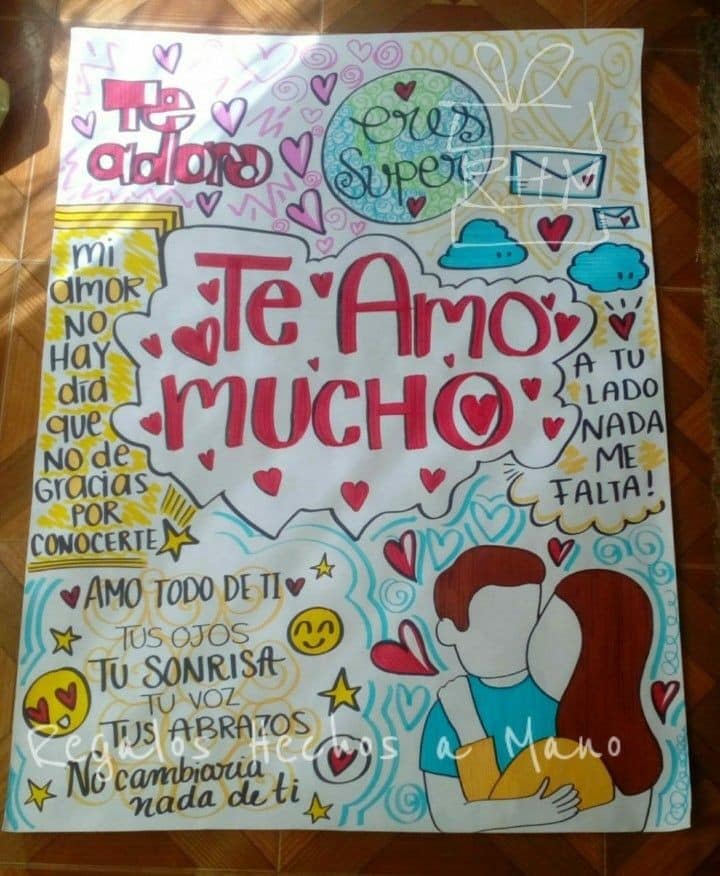 Te
adoro
eres
super
RHM
mi
amor
NO
HAY
día
que
NO de
Gracias
POR
CONOCERTE
TE AMO
MUCHO
A TU
LADO
NADA
ME
FALTA!
AMO TODO DE TI
TUS OJOS
TU SONRISA
TU VOZ
TUS ABRAZOS
No cambiaria
nada de ti
Regalos Hechos a Mano